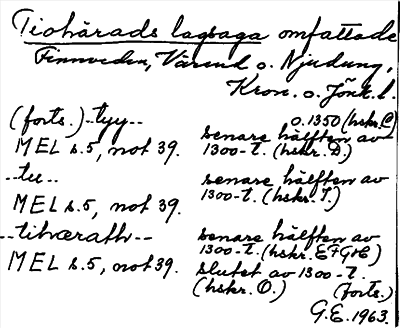 Tiohärads lagsaga omfattade
Finnveden, Värend o. Njudung,
Kron. o. Jönk. l.
(forts.) --tyy-- o.1350 (hskr. C)
MEL s.5, not 39. senare hälften av
1300-t. (hskr. D.)
--tu-- senare hälften av
MEL s.5, not 39. 1300-t. (hskr. I.)
--tihærath-- senare hälften av
1300-t. (hskr. EFGH)
MEL s.5, not 39. slutet av 1300-t.
(hskr. O.) (forts.)
G.E. 1963.